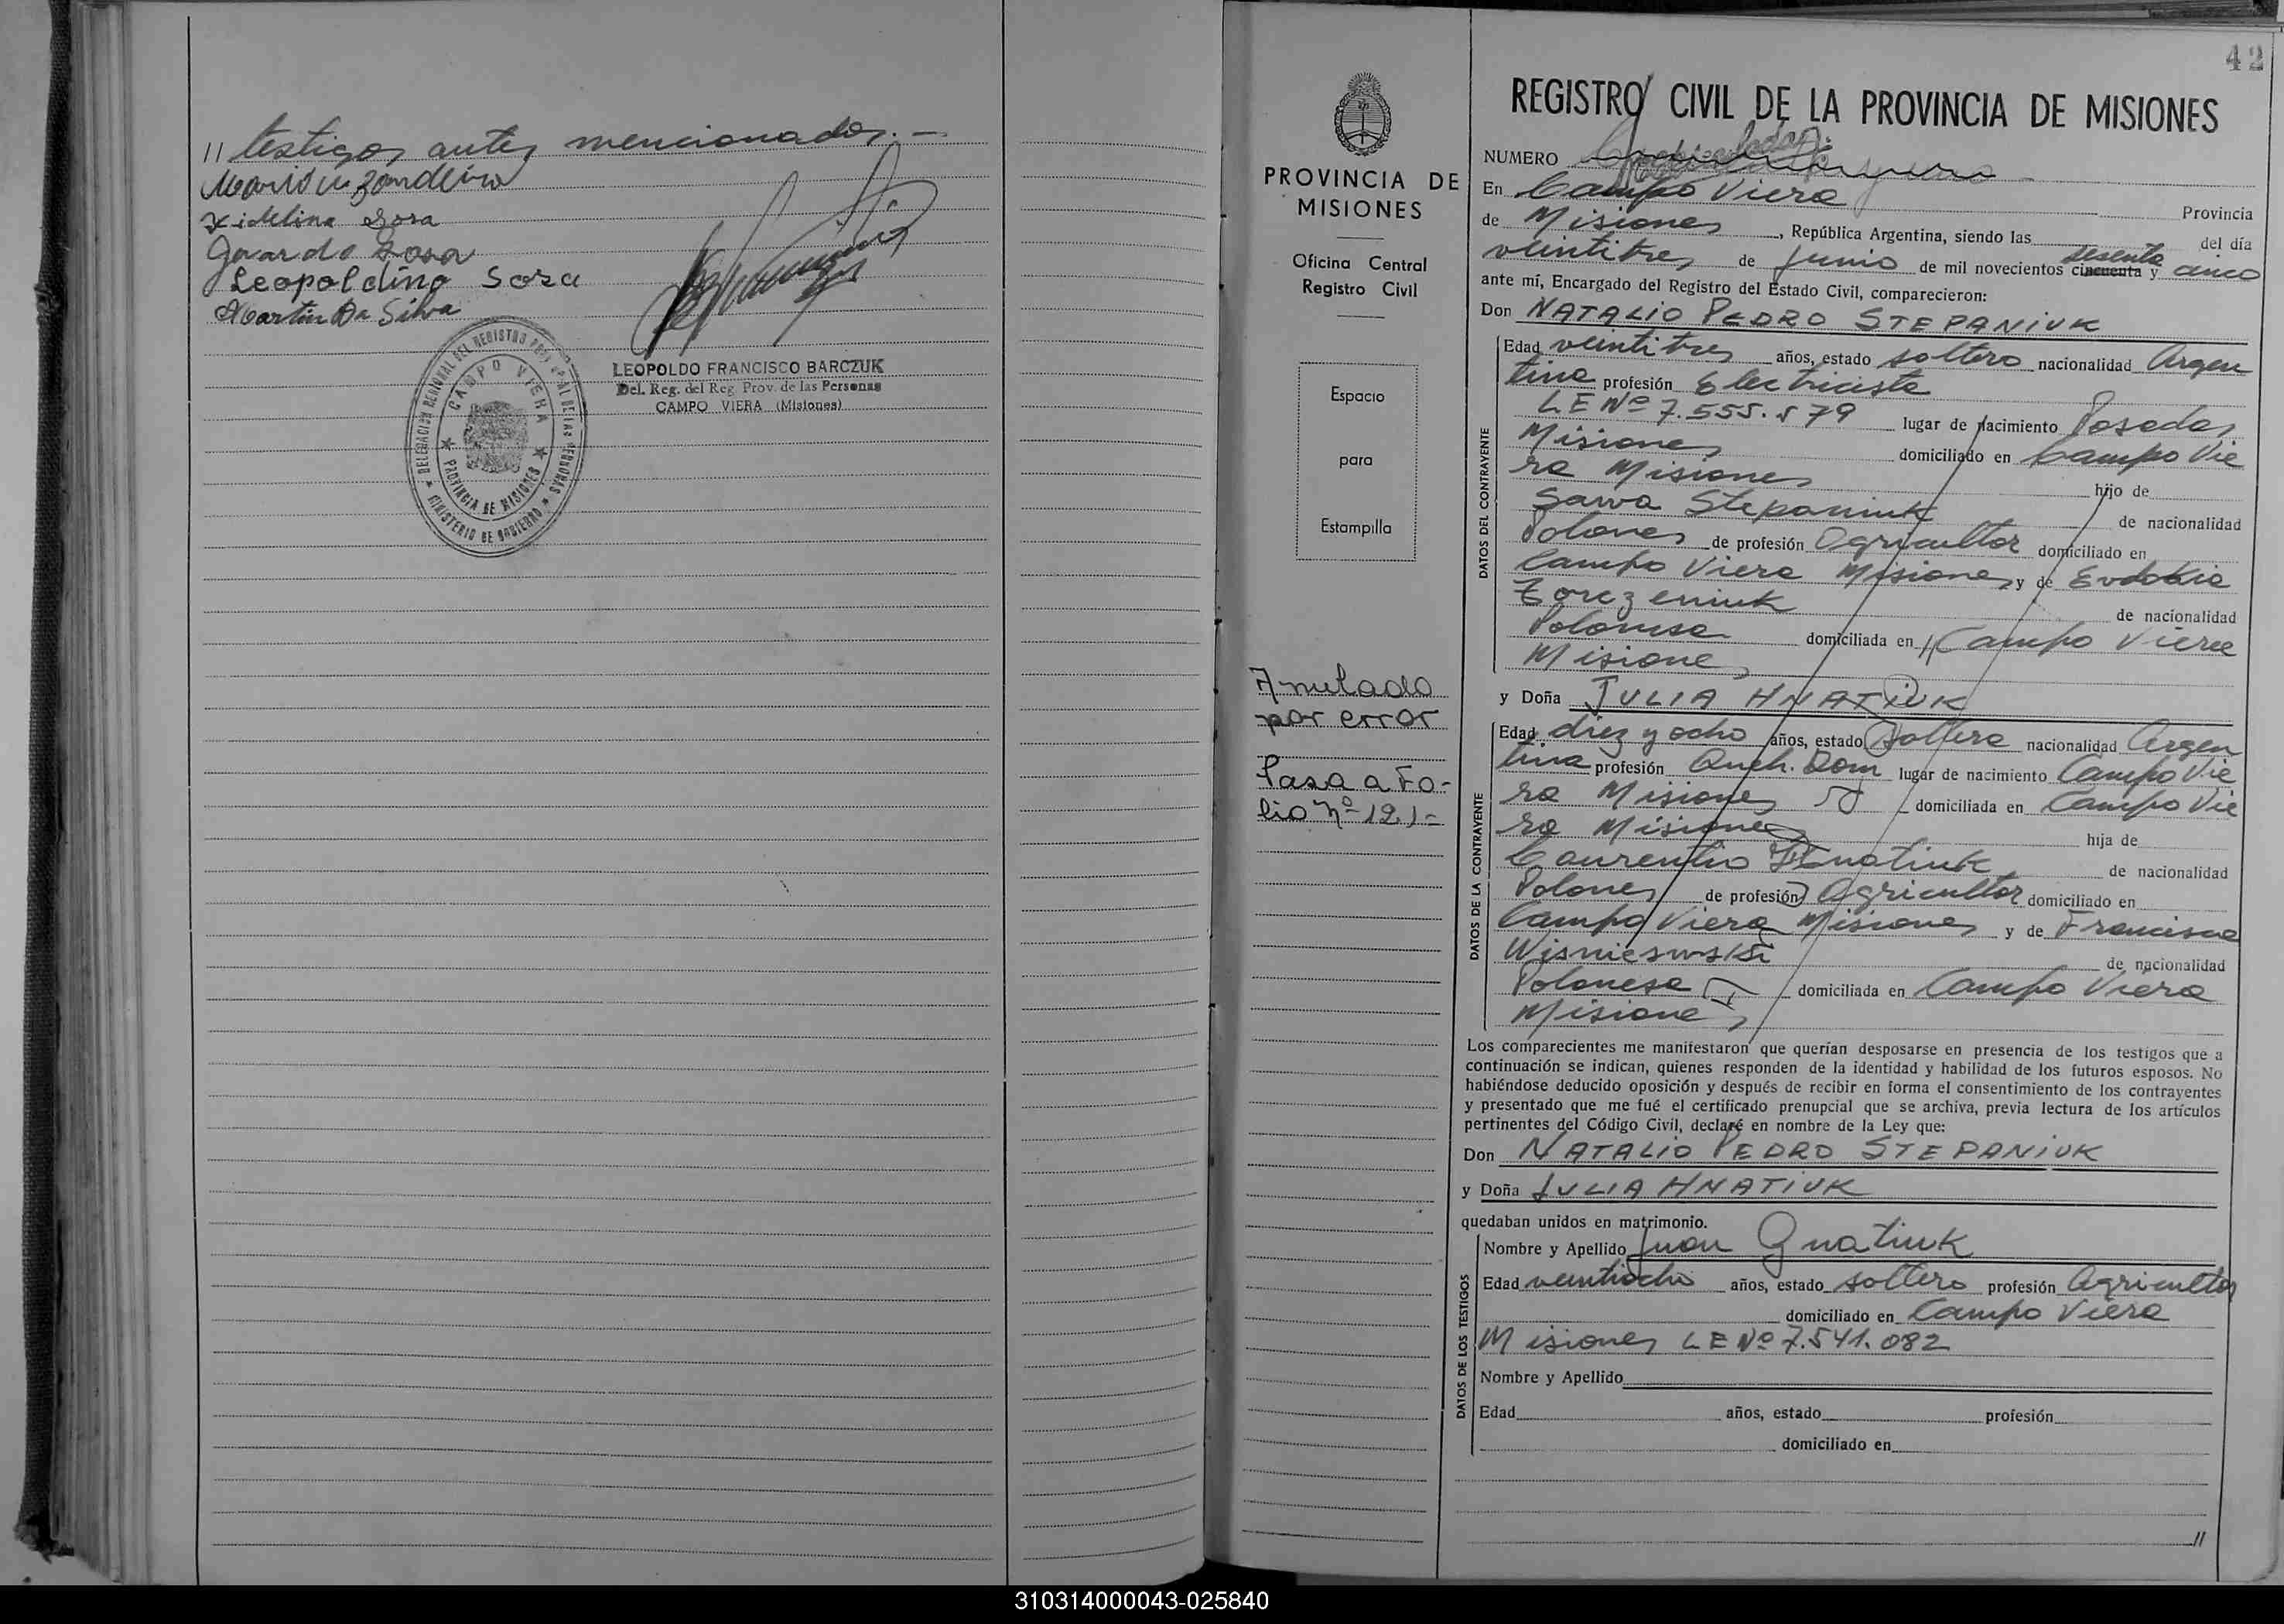 // testigos antes mencionados.—
Fidelina Sosa
Leopoldina Sosa
Martin Da Silva
LEOPOLDO FRANCISCO BARCZUK
Del. Reg. del Reg. Prov. de las Personas
CAMPO VIERA (Misiones)
DELEGACION REGIONAL DEL REGISTRO PROVINCIAL DE LAS PERSONAS
CAMPO VIERA
PROVINCIA DE MISIONES
MINISTERIO DE GOBIERNO
PROVINCIA DE
MISIONES
Oficina Central
Registro Civil
Espacio
para
Estampilla
Anulado
por error
Pasa a Fo-
lio Nº 12.)-
42
REGISTRO CIVIL DE LA PROVINCIA DE MISIONES
NUMERO
En Campo Viera Provincia
de Misiones, República Argentina, siendo las del día
veintitres de Junio de mil novecientos cincuenta sesenta y cinco
ante mí, Encargado del Registro del Estado Civil, comparecieron:
Don NATALIO PEDRO STEPANIUK
DATOS DEL CONTRAYENTE
Edad veintitres años, estado soltero nacionalidad Argen
tina profesión Electricista
LE Nº 7.555.579 lugar de nacimiento Posadas
Misiones domiciliado en Campo Vie
ra Misiones hijo de
Sawa Stepaniuk de nacionalidad
Polones de profesión Agricultor domiciliado en
Campo Viera Misiones y de Evdokia
Torczeniuk de nacionalidad
Polonesa domiciliada en // Campo Viera
Misiones
y Doña JULIA HNATIUK
DATOS DE LA CONTRAYENTE
Edad diez y ocho años, estado soltera nacionalidad Argen
tina profesión Queh. Dom lugar de nacimiento Campo Vie
ra Misiones domiciliada en Campo Vie
ra Misiones hija de
Laurentio Hnatiuk de nacionalidad
Polones de profesión Agricultor domiciliado en
Campo Viera Misiones y de Francisca
Wisnieswski de nacionalidad
Polonesa domiciliada en Campo Viera
Misiones
Los comparecientes me manifestaron que querían desposarse en presencia de los testigos que a
continuación se indican, quienes responden de la identidad y habilidad de los futuros esposos. No
habiéndose deducido oposición y después de recibir en forma el consentimiento de los contrayentes
y presentado que me fué el certificado prenupcial que se archiva, previa lectura de los artículos
pertinentes del Código Civil, declaré en nombre de la Ley que:
Don NATALIO PEDRO STEPANIUK
y Doña JULIA HNATIUK
quedaban unidos en matrimonio.
DATOS DE LOS TESTIGOS
Nombre y Apellido Juan Gnatiuk
Edad veintiocho años, estado soltero profesión Agricultor
domiciliado en Campo Viera
Misiones LE Nº 7.541.082
Nombre y Apellido
Edad años, estado profesión
domiciliado en
//
310314000043-025840